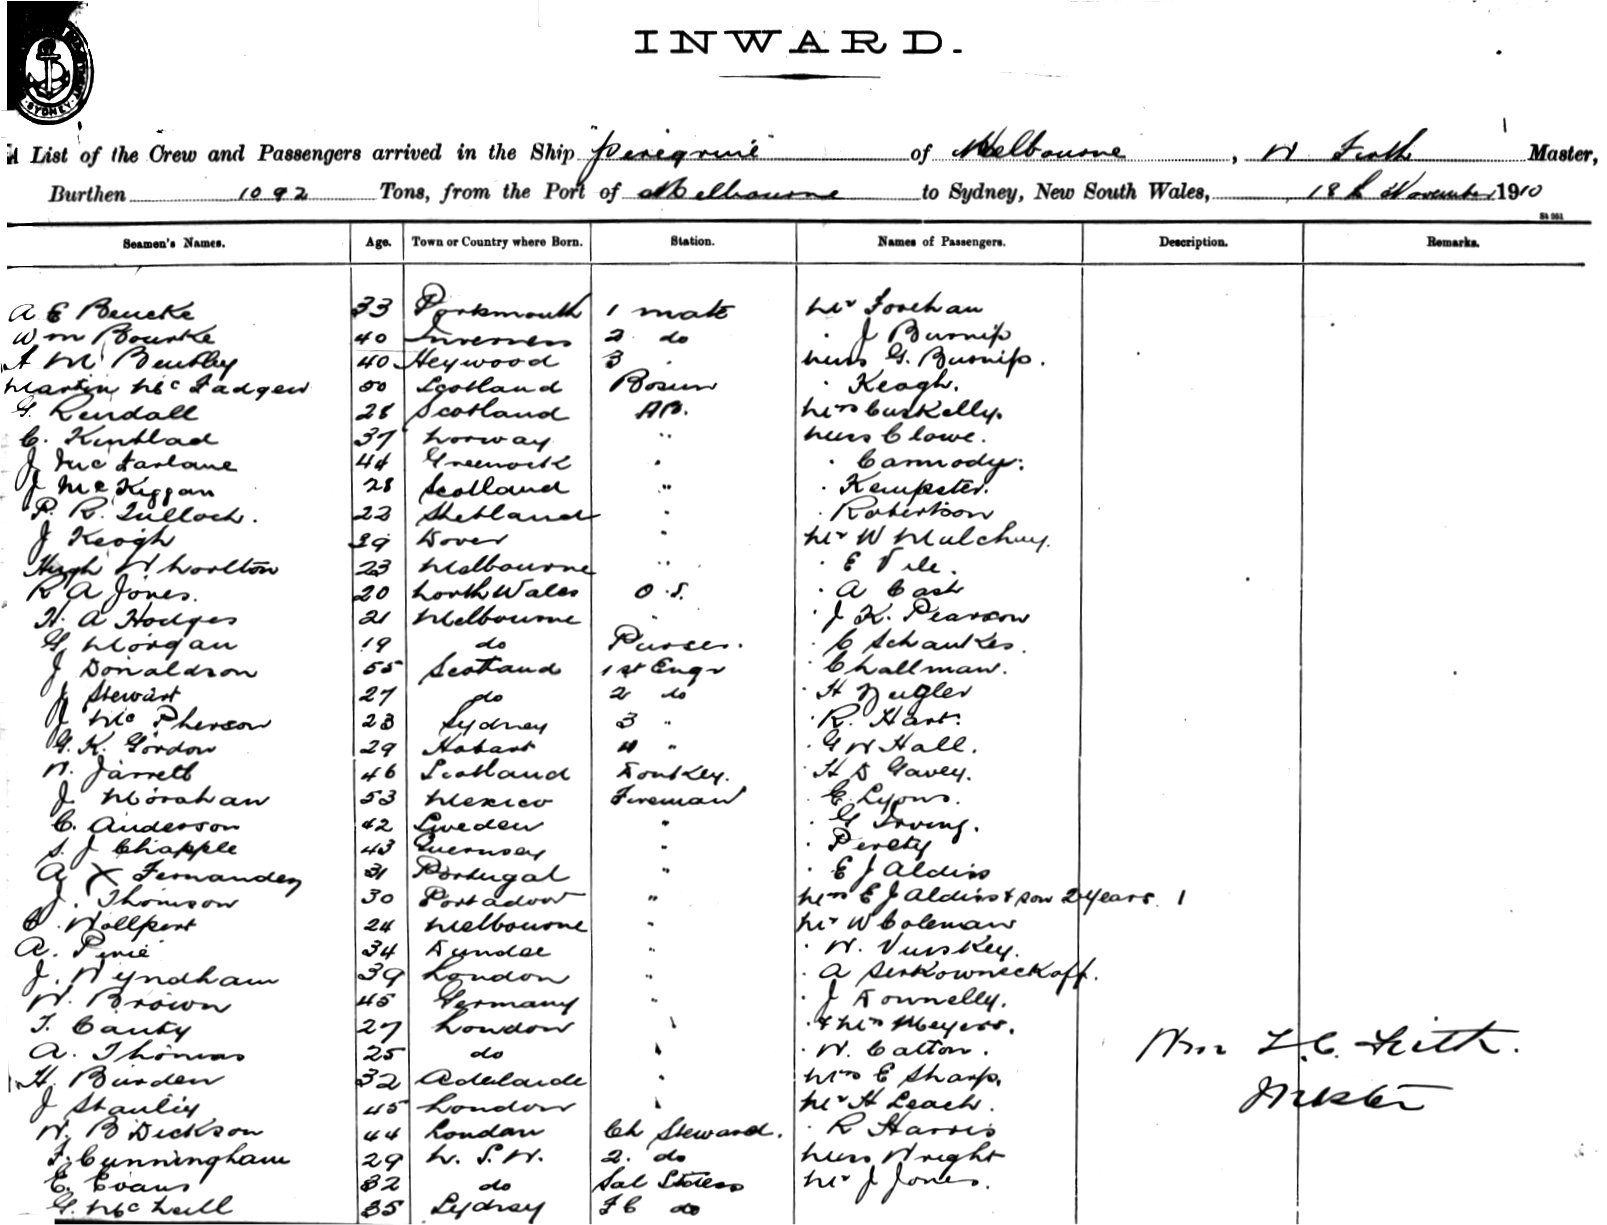 SYDNEY
INWARD.
A List of the Crew and Passengers arrived in the Ship "Peregrine" of Melbourne, W Firth Master,
Burthen 1092 Tons, from the Port of Melbourne to Sydney, New South Wales, 18th November 1910
Seamen's Names. Age. Town or Country where Born. Station. Names of Passengers. Description. Remarks.
A E Beucke 33 Portsmouth 1 mate Mr Forehan
Wm Bourke 40 Inverness 2 do " J Burnip
A M Bentley 40 Heywood 3 " Miss G. Burnip.
Martin McFadgen 50 Scotland Bosun " Keogh.
G. Kendall 28 Scotland AB. Mrs Cuskelly.
C. Kintblad 37 Norway " Miss Clowe.
J McFarlane 44 Greenock " " Carmody.
J McKiggan 28 Scotland " " Kempster.
P. R. Tulloch. 22 Shetland " " Robertson
J Keogh 39 Dover " Mr W Mulchuy.
Hugh W Worlton 23 Melbourne " " E Vile.
R A Jones. 20 North Wales O.S. " A Cash
H. A Hodges 21 Melbourne " " J K. Pearson
G Morgan 19 do Purser. " C Schaukes.
J Donaldson 55 Scotland 1st Engr " Challman.
J Stewart 27 do 2 do " H Neugler
J McPherson 23 Sydney 3 " " R. Hart.
G. K. Gordon 29 Hobart 4 " " G W Hall.
W. Jarrett 46 Scotland Donkey. " H D Gavey.
J Morahan 53 Mexico Fireman " E. Lyons.
C. Anderson 42 Sweden " " G Irving.
S. J Chapple 43 Guernsey " " Perety
A X Fernandez 31 Portugal " " E J Aldiss
J. Thomson 30 Portadown " Mrs E J Aldiss & son 2 years. 1
C. Wollpert 24 Melbourne " Mr W Coleman
A. Pirie 34 Dundee " " W. Vinskey.
J. Wyndham 39 London " " A Serkowneckoff.
W. Brown 45 Germany " " J Donnelly.
T. Canty 27 London " " & Mrs Meyers.
A. Thomas 25 do " " W. Catton. Wm F. C. Firth.
H. Burden 32 Adelaide " Mrs E Sharp.
J Stanley 45 London " Mr H Leach. Master
W. B Dickson 44 London Ch Steward. " R Harris
F. Cunningham 29 N. S. W. 2. do Miss Wright
E. Evans 32 do Sal Stess Mr J Jones.
G. McNeill 35 Sydney F C do